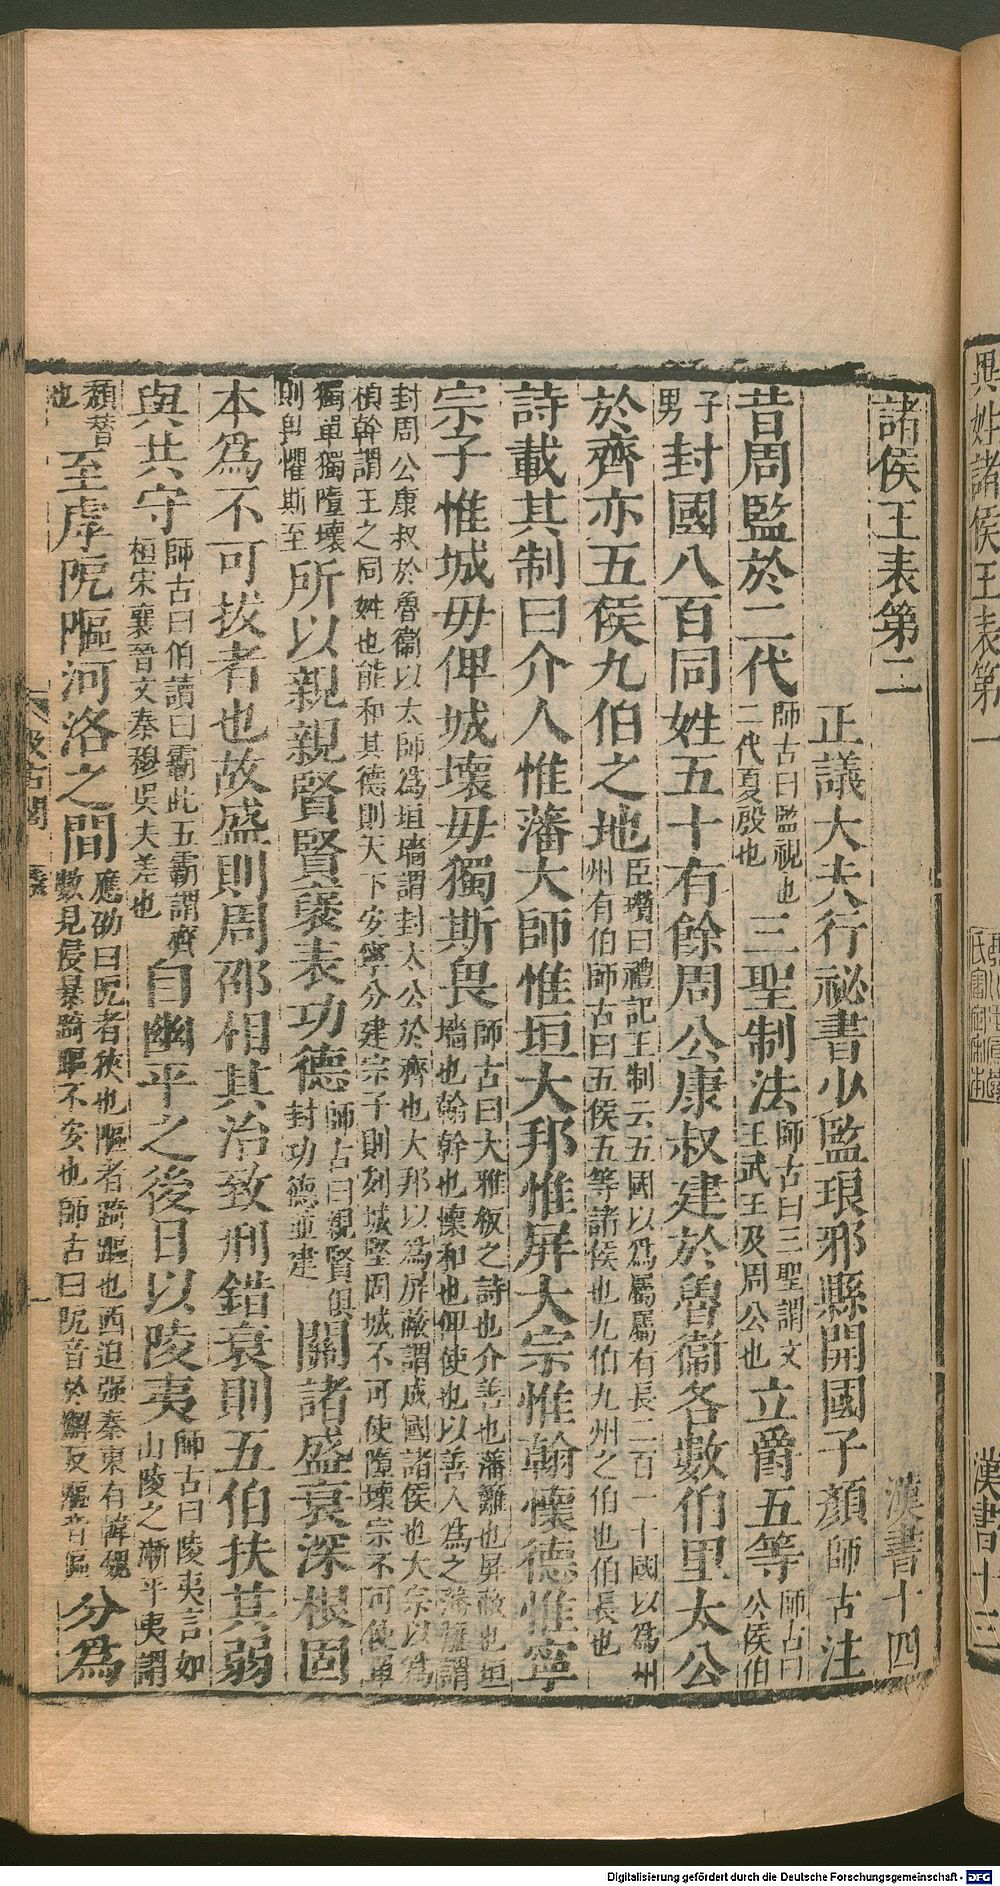 諸侯王表第二 漢書十四
正議大夫行祕書少監琅邪縣開國子顏師古注
昔周監於二代師古曰監視也二代夏殷也三聖制法師古曰三聖謂文王武王及周公也立爵五等師古曰公侯伯
子男封國八百同姓五十有餘周公康叔建於魯衞各數伯里太公
於齊亦五侯九伯之地臣瓚曰禮記王制云五國以爲屬屬有長二百一十國以爲州州有伯師古曰五侯五等諸侯也九伯九州之伯也伯長也
詩載其制曰介人惟藩大師惟垣大邦惟屏大宗惟翰懷德惟寧
宗子惟城毋俾城壞毋獨斯畏師古曰大雅板之詩也介善也藩籬也屏蔽也垣墻也翰幹也懷和也俾使也以善人爲之藩籬謂
封周公康叔於魯衞以太師爲垣墻謂封太公於齊也大邦以爲屏蔽謂成國諸侯也大宗以爲楨幹謂王之同姓也能和其德則天下安寧分建宗子則列城堅固城不可使墮壞宗不可使單
獨單獨墮壞則與懼斯至所以親親賢賢襃表功德師古曰親賢俱封功德並建關諸盛衰深根固
本爲不可拔者也故盛則周邵相其治致刑錯衰則五伯扶其弱
與共守師古曰伯讀曰霸此五霸謂齊桓宋襄晉文秦穆吳夫差也自幽平之後日以陵夷師古曰陵夷言如山陵之漸平夷謂
頹替也至虖阸䧢河洛之間應劭曰阸者狹也䧢者踦䧢也西迫强秦東有韓魏數見侵暴踦䧢不安也師古曰阸音於懈反䧢音區分爲
汲古閣
異姓諸侯王表第一
漢書十三
Digitalisierung gefördert durch die Deutsche Forschungsgemeinschaft - DFG